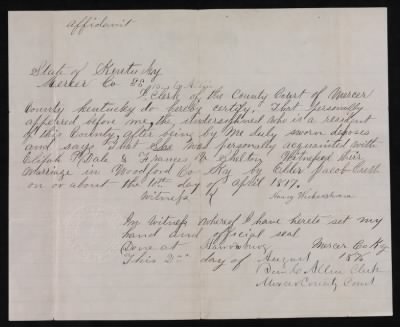 Affidavit
State of Kentucky
Mercer Co
I, Clerk of the County Court of Mercer
County Kentucky do hereby certify That personally
appeared before me, the undersigned who is a resident
of this County, after being by me duly sworn deposes
and says That she was personally acquainted with
Elijah P. Dale & Frances V. Shelton Witnessed their
marriage in Woodford Co Ky by Elder Jacob
on or about the 10th day of April 1817.
Witness Henry
In Witness Whereof I have hereto set my
hand and official seal
Done at Harrodsburg Mercer Co Ky
This 2nd day of August
Ben C. Allin Clerk
Mercer County Court